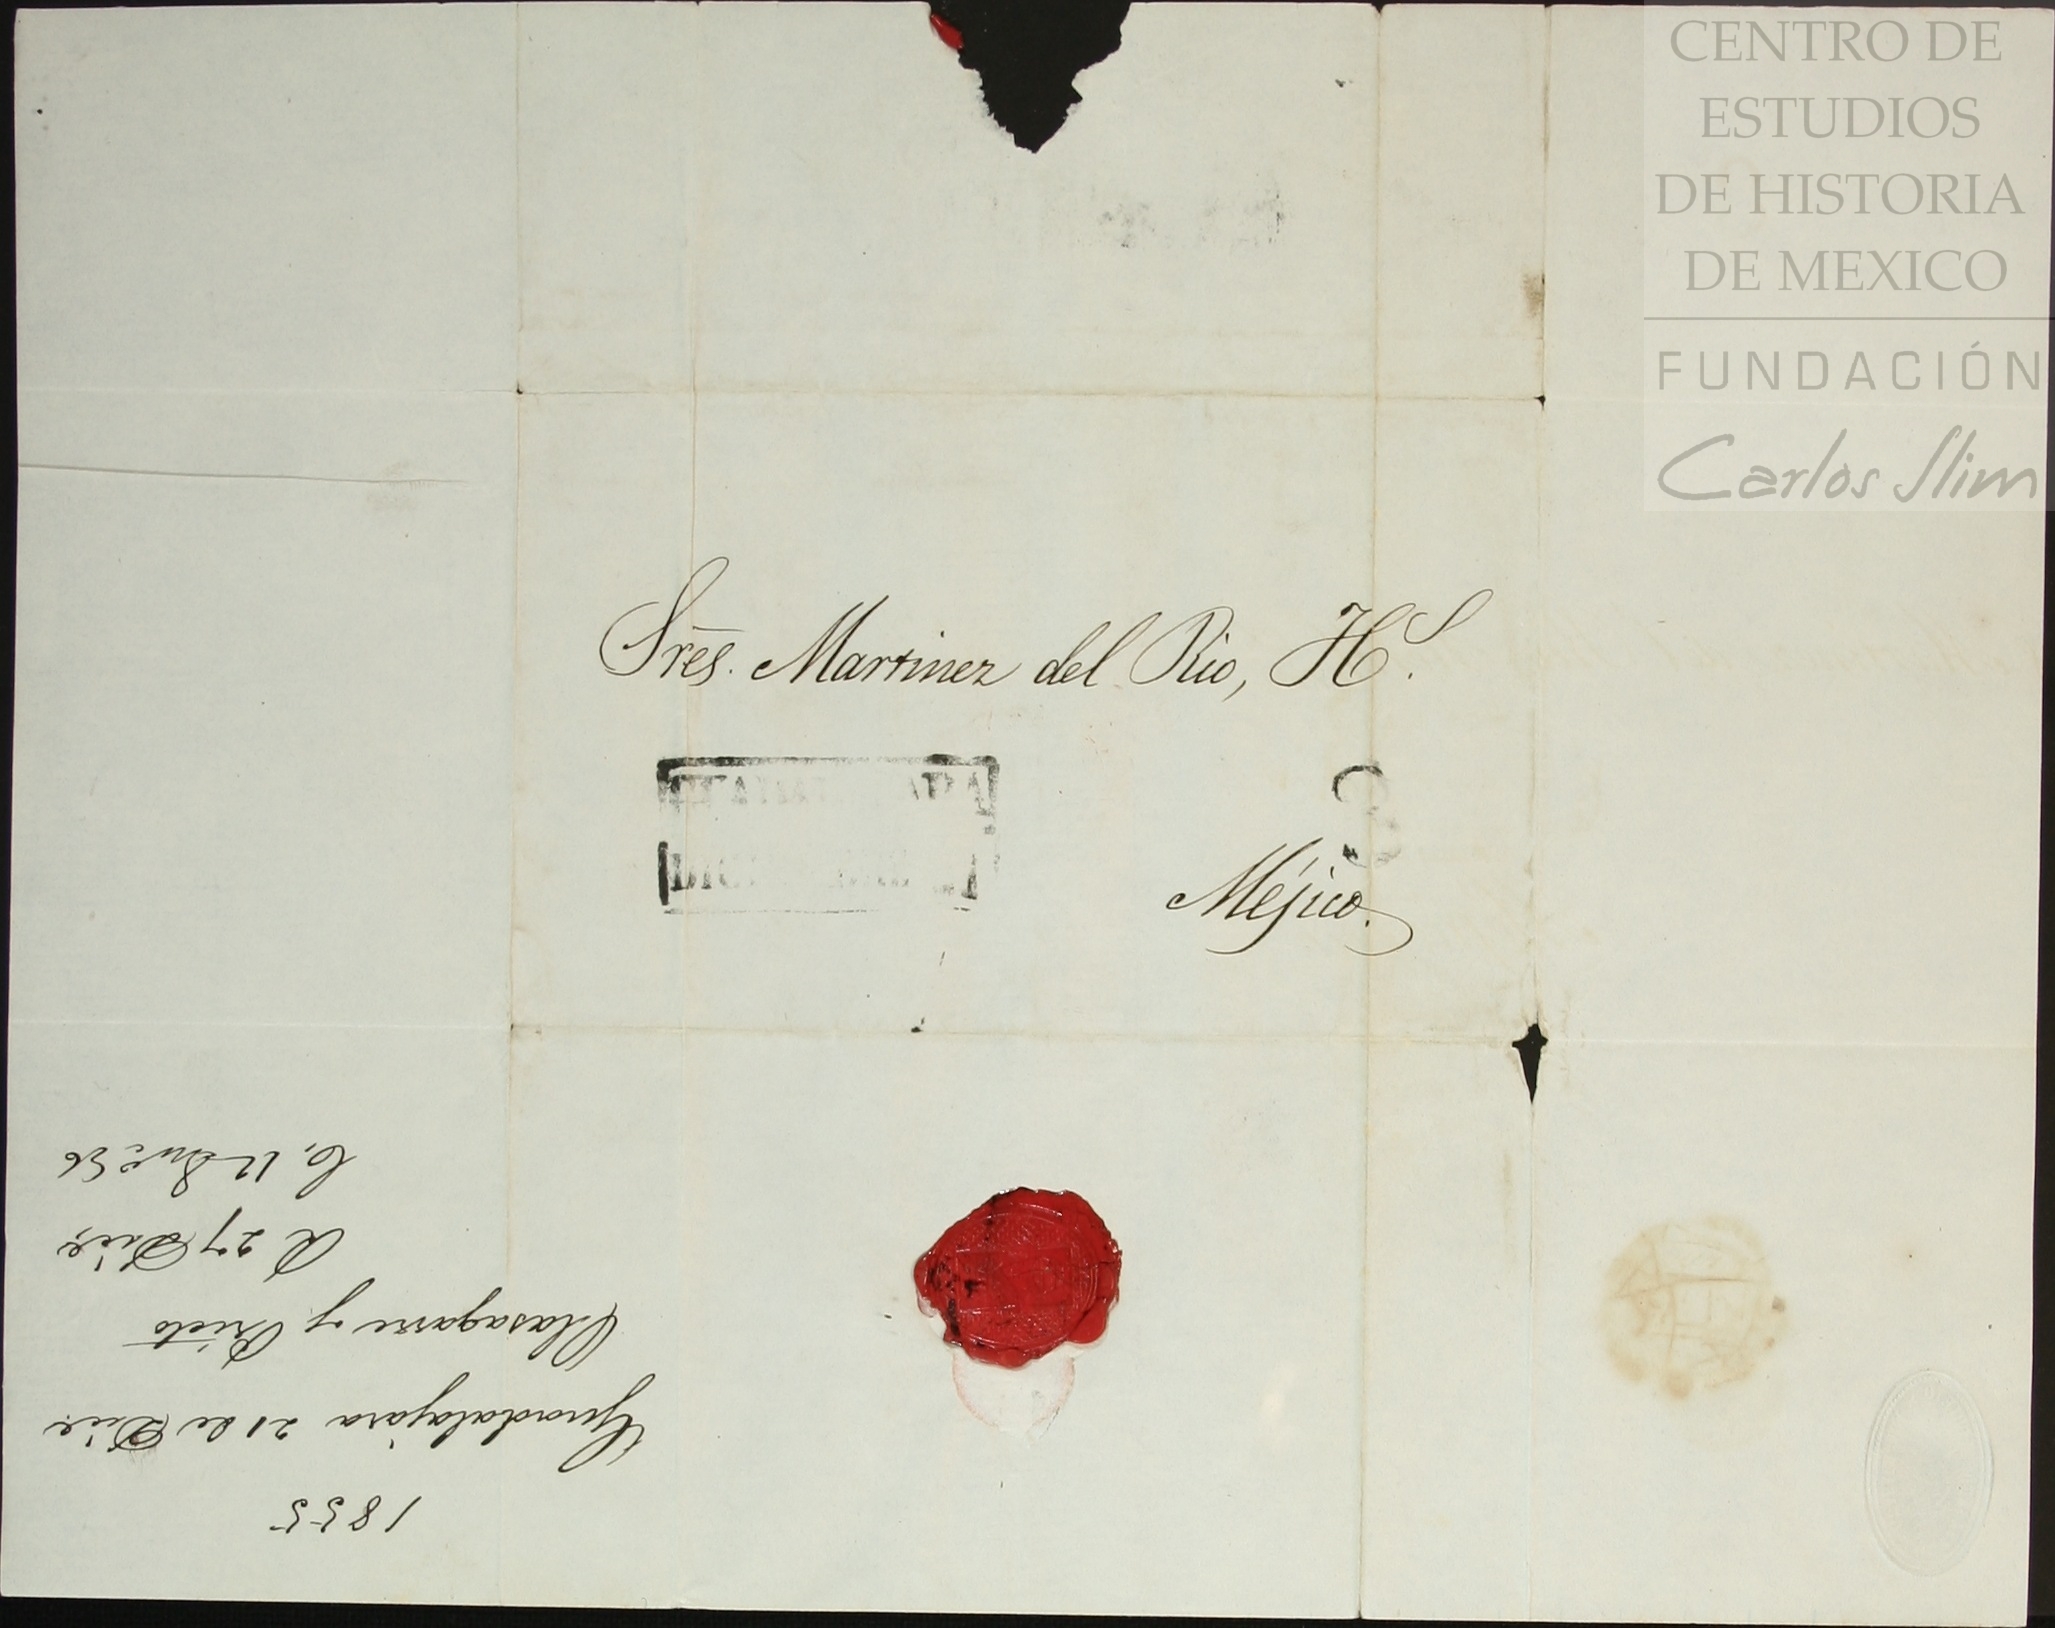 CENTRO DE
ESTUDIOS
DE HISTORIA
DE MEXICO
FUNDACIÓN
Carlos Slim
Sres. Martinez del Rio, Hs.
Méjico.
1855
Guadalajara 21 de Dice
Olasagarre y Prieto
R 27 Dice
C. 12 56